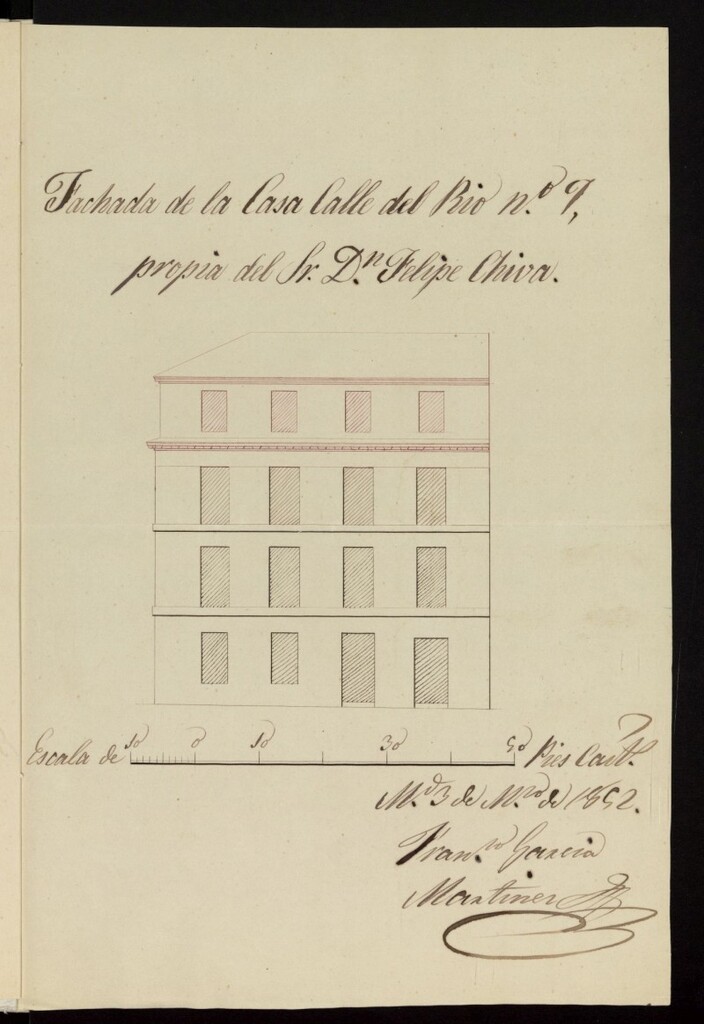 Fachada de la Casa Calle del Rio n.º 9,
propia del Sr. D.n Felipe Chiva.
Escala de 10 0 10 30 50 Pies Cast.s
M.d 3 de M.zo de 1852.
Fran.co Garcia
Martinez